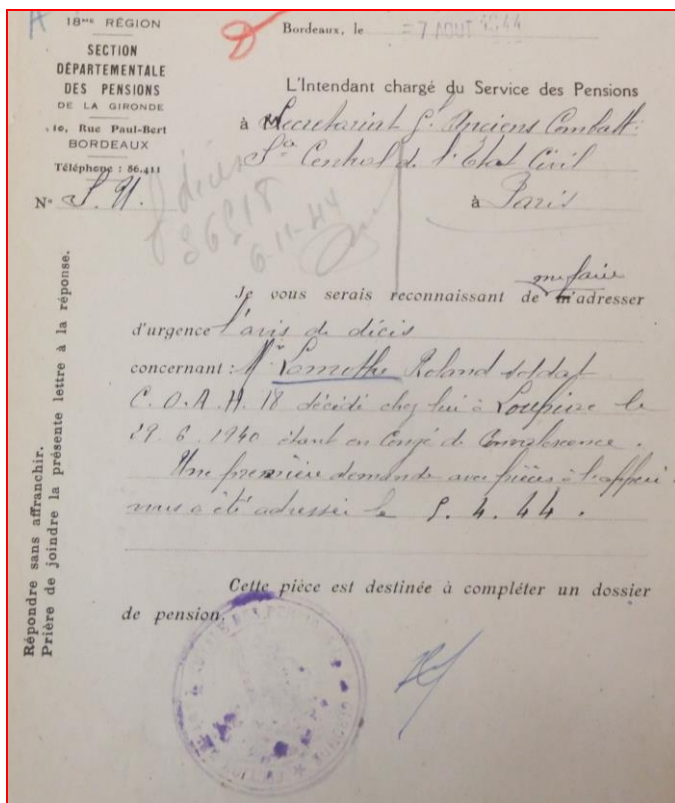 18ME RÉGION
SECTION
DÉPARTEMENTALE
DES PENSIONS
DE LA GIRONDE
10, Rue Paul-Bert
BORDEAUX
Téléphone : 86.411
N°
Bordeaux, le =7 AOUT 1944
L'Intendant chargé du Service des Pensions
à Secretariat Gl Anciens Combatt.
Sce Central de l'Etat Civil
à Paris
décès
6-11-44
me faire
Je vous serais reconnaissant de m'adresser
d'urgence l'avis de décès
concernant : Mr Lamothe Roland soldat
C.O.A.M. 18 décédé chez lui à Loupiac le
29.6.1940 étant en Congé de Convalescence.
Une première demande avec pièces à l'appui
vous a été adressée le 5.4.44.
Cette pièce est destinée à compléter un dossier
de pension.
Répondre sans affranchir.
Prière de joindre la présente lettre à la réponse.